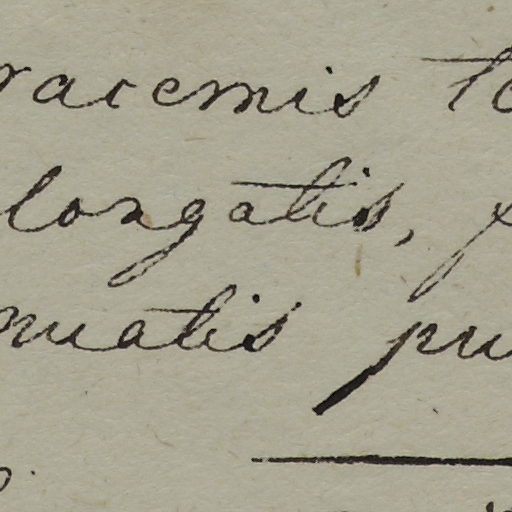 racemis te
longatis, p
nuatis pu